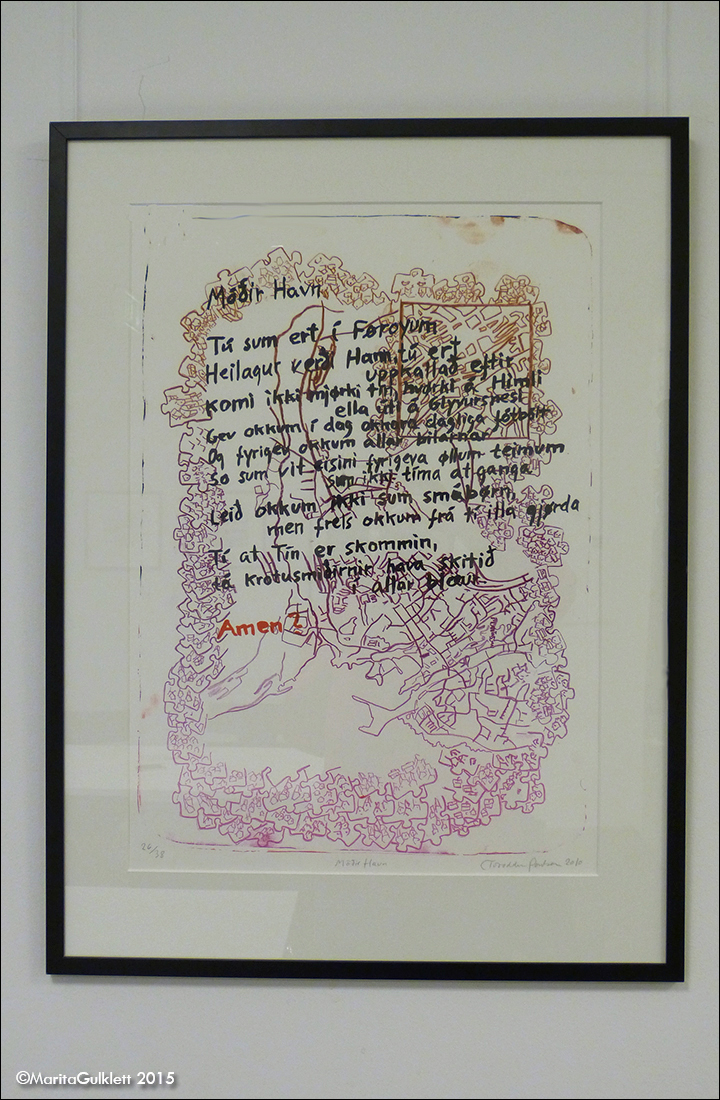 Móðir Havn,
Tú sum ert í Føroyum
Heilagur verði Hann, tú ert
uppkallað eftir
Komi ikki mjørki tín, hvørki á Himli
ella út á Glyvursnesi
Gev okkum í dag okkara dagliga fótbólt
Og fyrigev okkum allar bilarnar
so sum vit eisini fyrigeva øllum teimum
sum ikki tíma at ganga
Leið okkum ikki sum smábørn,
men frels okkum frá tí illa gjørda
Tí at Tín er skommin,
tá krotusmiðirnir hava skitið
í allar
Amen?
26/38
Móðir Havn
2010
©MaritaGulklett 2015